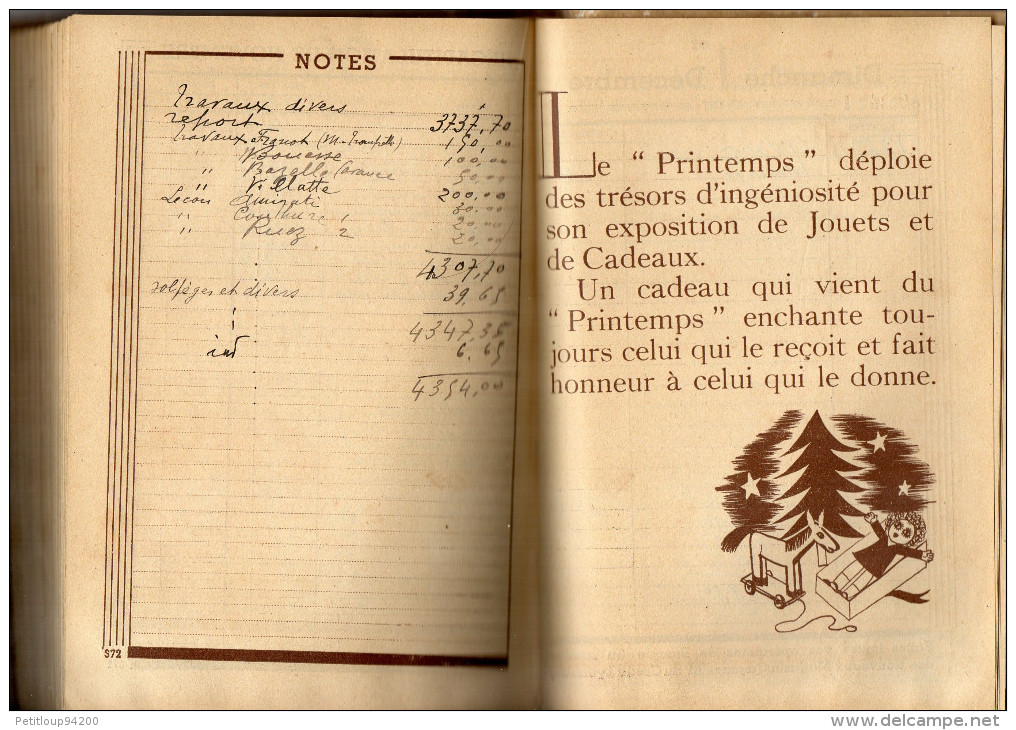 NOTES
Travaux divers
report 3737,70
Travaux Franot 150,00
" Bouesse 100,00
" 50,00
" V. Platte 200,00
Leçon 30.00
" 1 20.00
" Ruez 2 20,00
4307,70
solfèges et divers 39,65
4347,35
6,65
4354,00
S72
Le “ Printemps ” déploie
des trésors d'ingéniosité pour
son exposition de Jouets et
de Cadeaux.
Un cadeau qui vient du
“ Printemps ” enchante tou-
jours celui qui le reçoit et fait
honneur à celui qui le donne.
Petitloup94200
delcampe.net